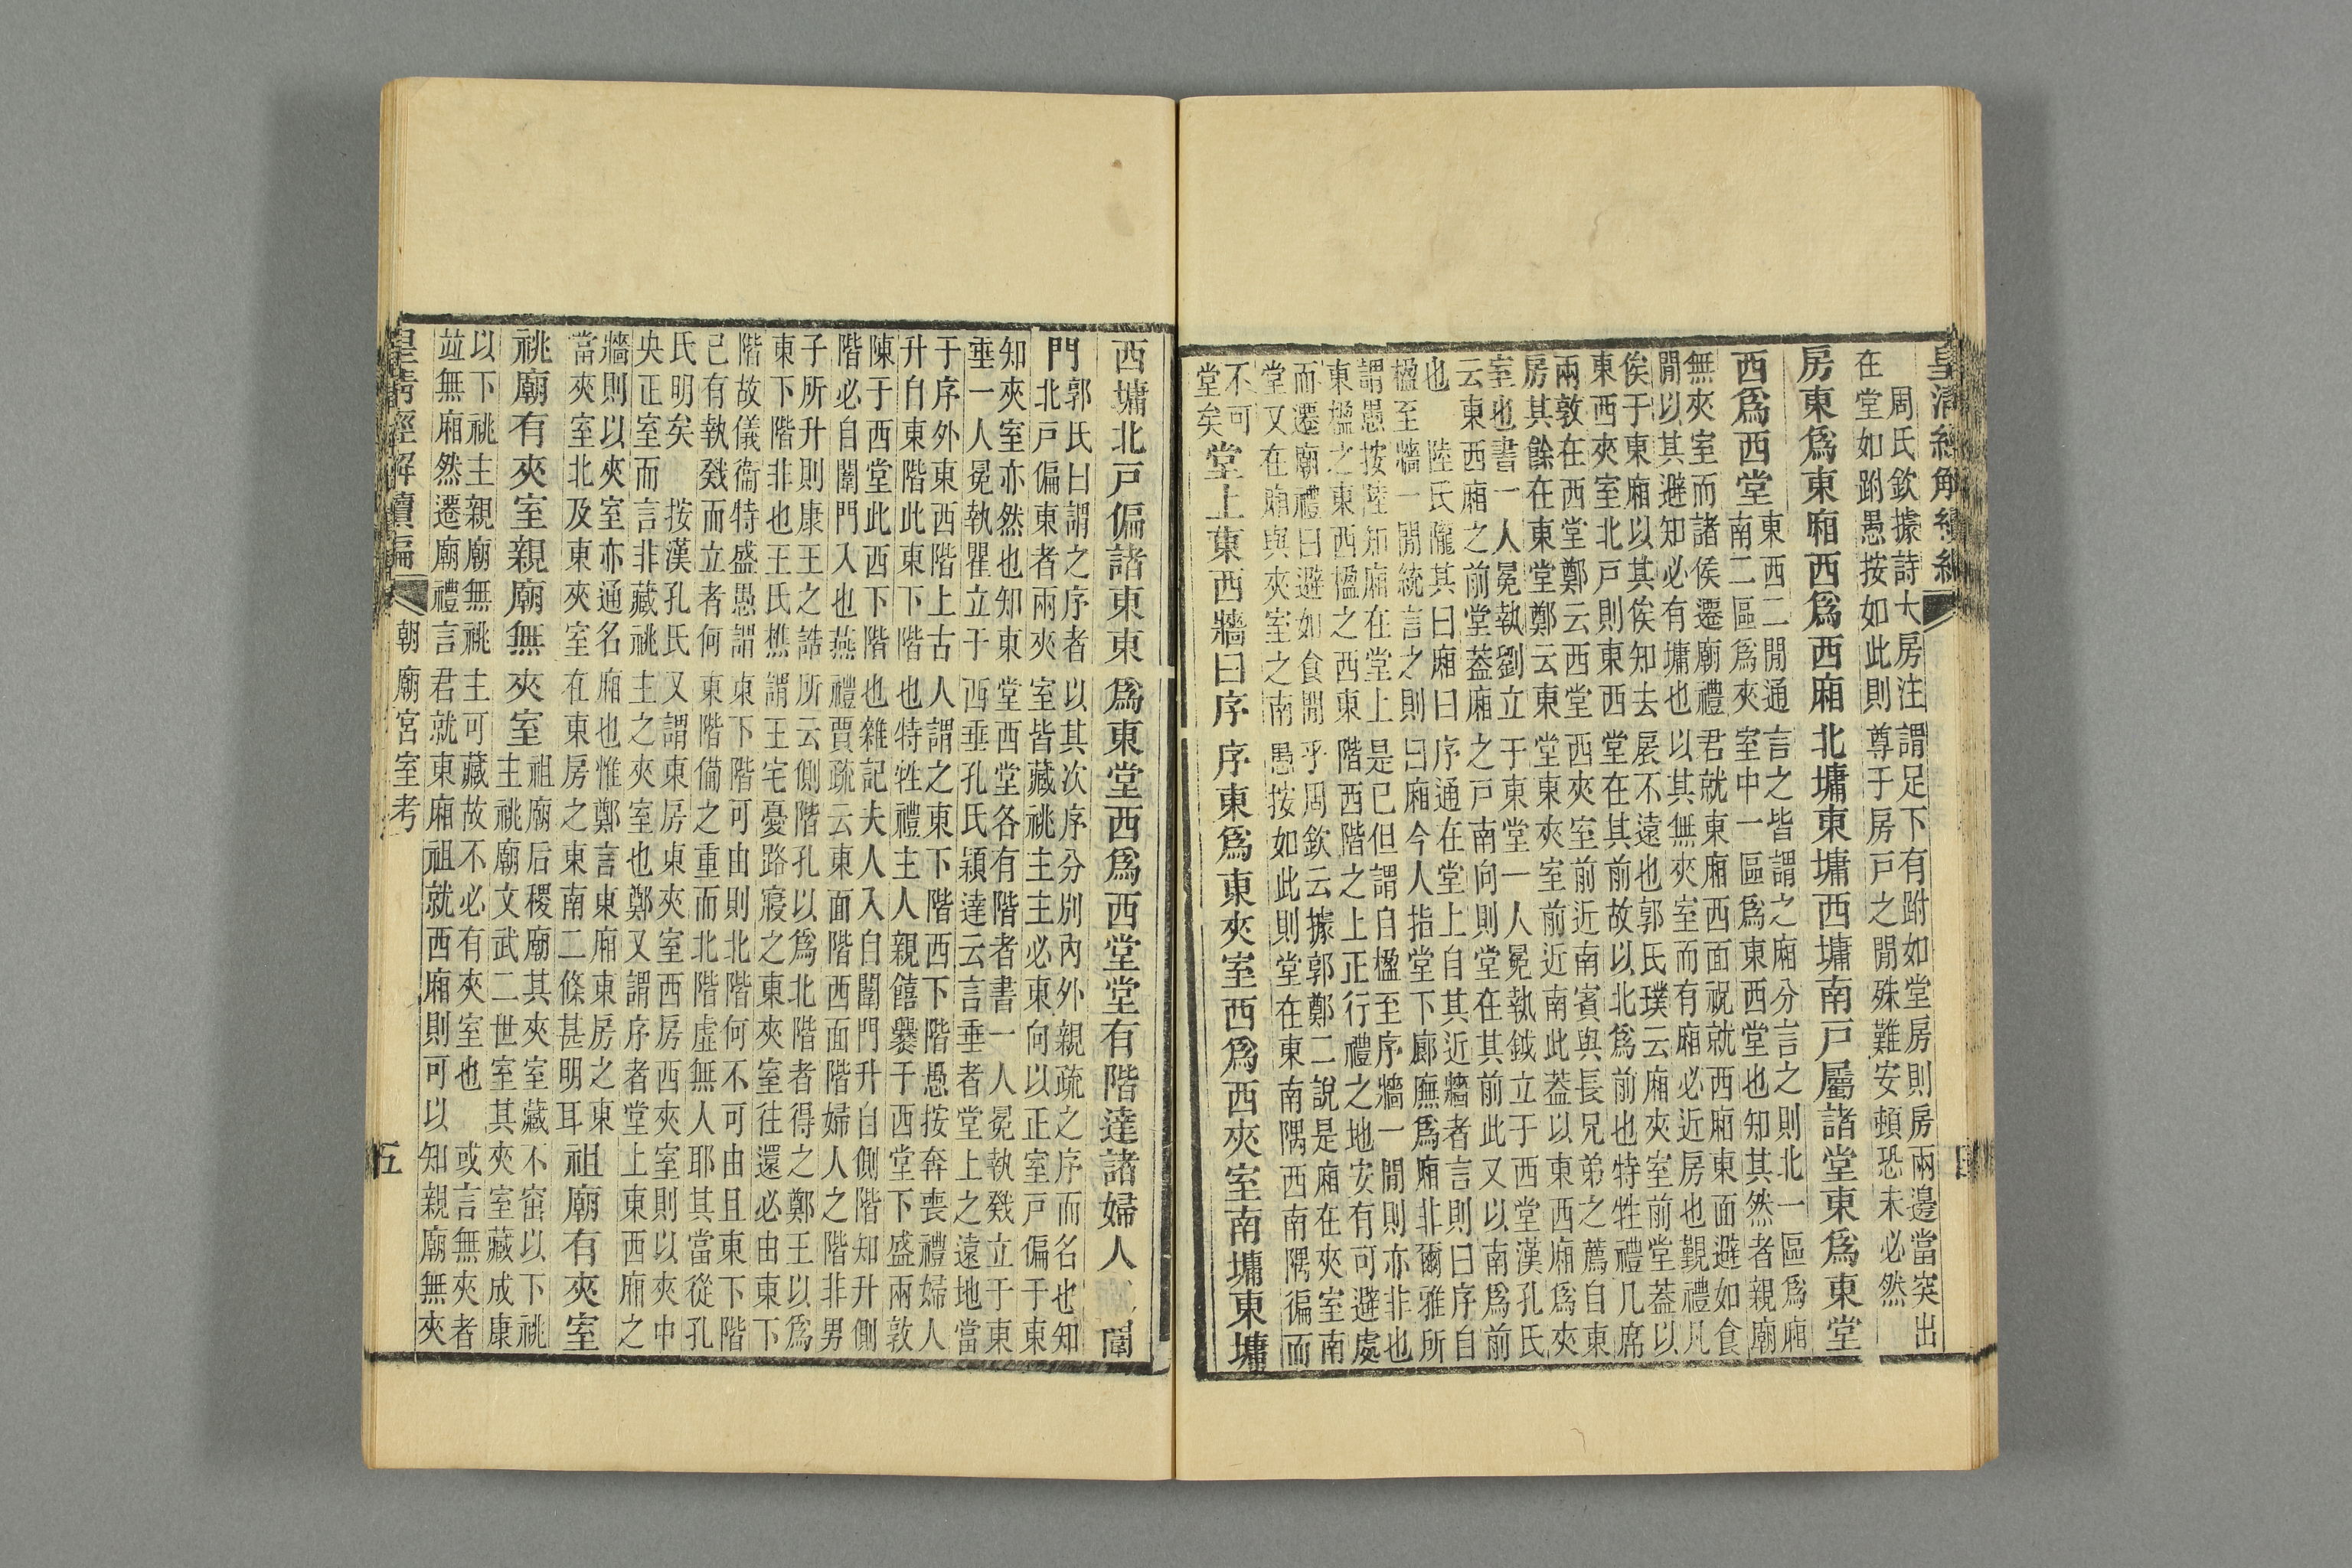 皇清經解續編
周氏欽據詩大房注謂足下有跗如堂房則房兩邊當突出
在堂如跗愚按如此則尊于房戸之閒殊難安頓恐未必然
房東爲東廂西爲西廂北墉東墉西墉南戸屬諸堂東爲東堂
西爲西堂
東西二閒通言之皆謂之廂分言之則北一區爲廂
南二區爲夾室中一區爲東西堂也知其然者親廟
無夾室而諸侯遷廟禮君就東廂西面祝就西廂東面避如食
閒以其避知必有墉也以其無夾室而有廂必近房也覲禮凡
俟于東廂以其俟知去扆不遠也郭氏璞云廂夾室前堂葢以
東西夾室北戸則東西堂在其前故以北爲前也特牲禮几席
兩敦在西堂鄭云西堂西夾室前近南賓與長兄弟之薦自東
房其餘在東堂鄭云東堂東夾室前近南此葢以東西廂爲夾
室也書一人冕執劉立于東堂一人冕執鉞立于西堂漢孔氏
云東西廂之前堂葢廂之戸南向則堂在其前此又以南爲前
也 陸氏隴其曰廂曰序通在堂上自其近牆者言則曰序自
楹至牆一閒統言之則曰廂今人指堂下廊廡爲廂非爾雅所
謂愚按陸知廂在堂上是已但謂自楹至序牆一閒則亦非也
東楹之東西楹之西東階西階之上正行禮之地安有可避處
而遷廟禮曰避如食閒乎周欽云據郭鄭二說是廂在夾室南
堂又在廂與夾室之南愚按如此則堂在東南隅西南隅徧而
不可
堂矣
堂上東西牆曰序序東爲東夾室西爲西夾室南墉東墉
西墉北戸偏諸東東爲東堂西爲西堂堂有階達諸婦人闈
門
郭氏曰謂之序者以其次序分別內外親疏之序而名也知
北戸偏東者兩夾室皆藏祧主主必東向以正室戸偏于東
知夾室亦然也知東堂西堂各有階者書一人冕執戣立于東
垂一人冕執瞿立于西垂孔氏穎達云言垂者堂上之遠地當
于序外東西階上古人謂之東下階西下階愚按奔喪禮婦人
升自東階此東下階也特牲禮主人親饎爨于西堂下盛兩敦
陳于西堂此西下階也雜記夫人入自闈門升自側階知升側
階必自闈門入也燕禮賈疏云東面階西面階婦人之階非男
子所升則康王之誥所云側階孔以爲北階者得之鄭王以爲
東下階非也王氏樵謂王宅憂路寢之東夾室往還必由東下
階故儀衞特盛愚謂東下階可由則北階何不可由且東下階
已有執戣而立者何東階備之重而北階虛無人耶其當從孔
氏明矣 按漢孔氏又謂東房東夾室西房西夾室則以夾中
央正室而言非藏祧主之夾室也鄭又謂序者堂上東西廂之
牆則以夾室亦通名廂也惟鄭言東廂東房之東
當夾室北及東夾室在東房之東南二條甚明耳
祖廟有夾室
祧廟有夾室親廟無夾室
祖廟后稷廟其夾室藏不窋以下祧
主祧廟文武二世室其夾室藏成康
以下祧主親廟無祧主可藏故不必有夾室也 或言無夾者
竝無廂然遷廟禮言君就東廂祖就西廂則可以知親廟無夾
皇清經解續編 朝廟宮室考 五